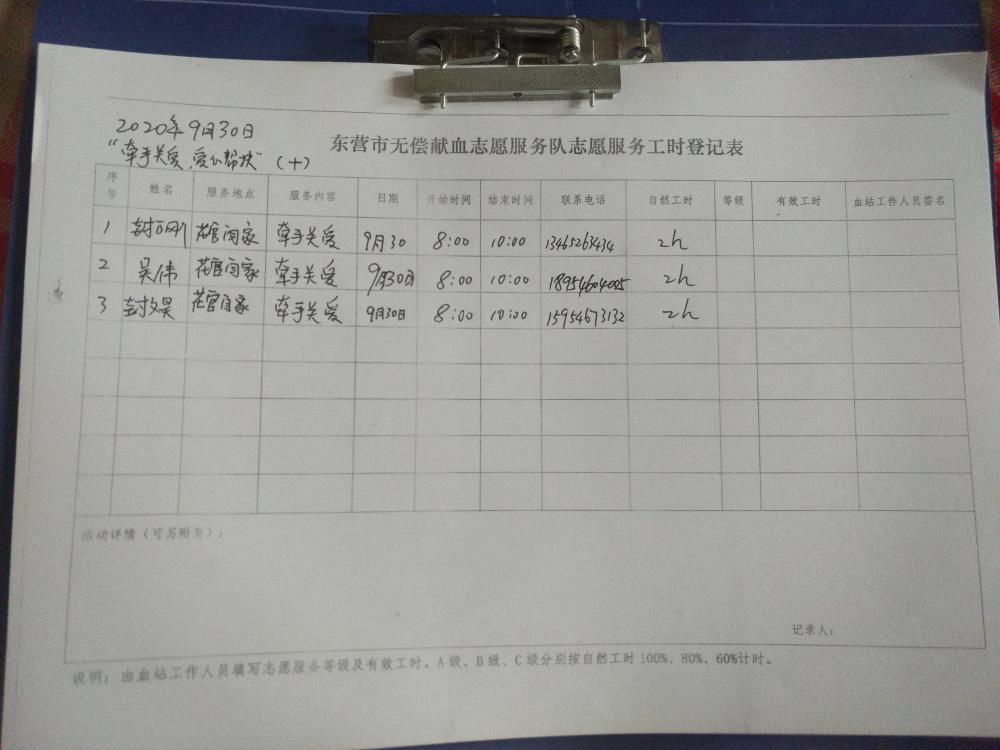 2020年9月30日
"牵手关爱,爱心帮扶"(十)
东营市无偿献血志愿服务队志愿服务工时登记表
序号 姓名 服务地点 服务内容 日期 开始时间 结束时间 联系电话 自然工时 等级 有效工时 血站工作人员签名
1 花官闫家 牵手关爱 9月30 8:00 10:00 13465263434 2h
2 吴伟 花官闫家 牵手关爱 9月30日 8:00 10:00 18954604005 2h
3 封文昊 花官闫家 牵手关爱 9月30日 8:00 10:00 15954673132 2h
活动详情(可另附页):
记录人:
说明:由血站工作人员填写志愿服务等级及有效工时。A级、B级、C级分别按自然工时100%、80%、60%计时。